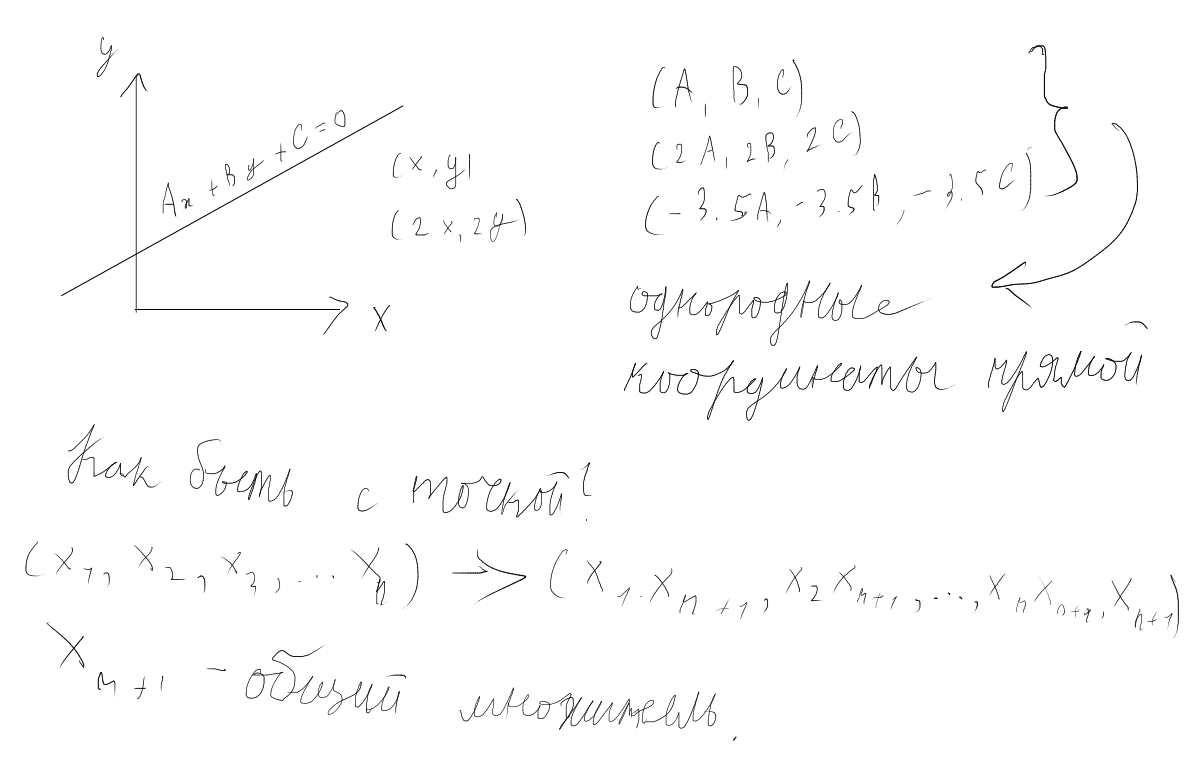 y
Ax + By + C = 0
(x, y)
(2x, 2y)
x
(A, B, C)
(2A, 2B, 2C)
(-3.5A, -3.5B, -3.5C)
однородные
координаты прямой
Как быть с точкой?
(x₁, x₂, x₃, ... xₙ) → (x₁·xₙ₊₁, x₂xₙ₊₁, ..., xₙxₙ₊₁, xₙ₊₁)
xₙ₊₁ - общий множитель.